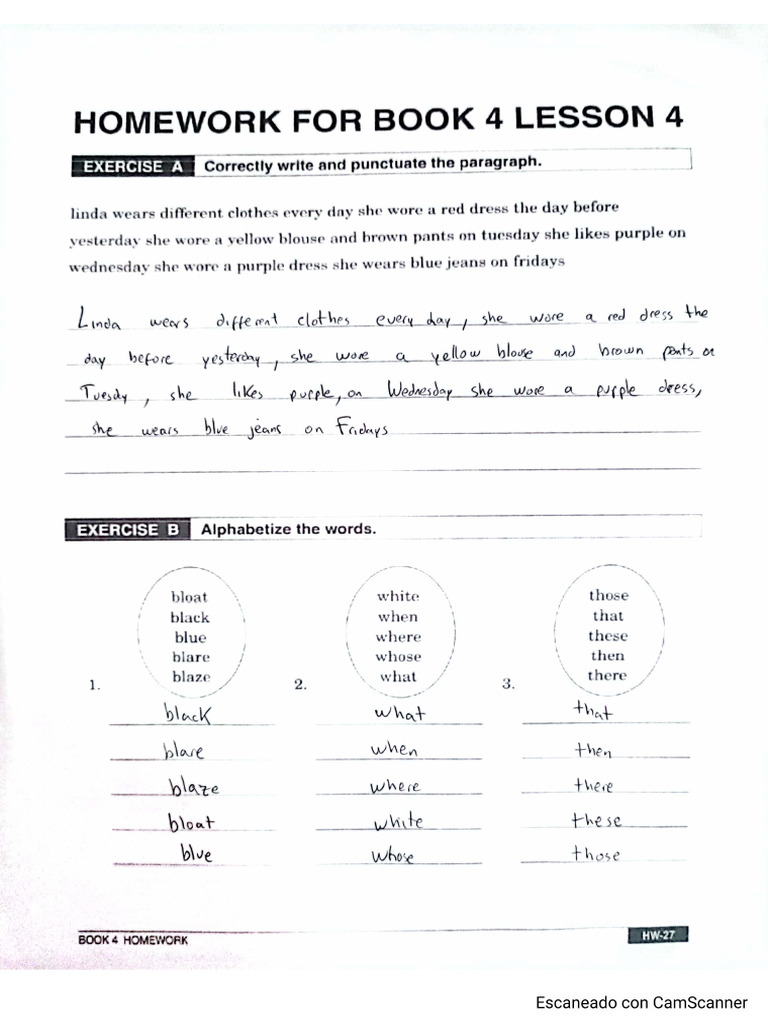 HOMEWORK FOR BOOK 4 LESSON 4
EXERCISE A Correctly write and punctuate the paragraph.
linda wears different clothes every day she wore a red dress the day before
yesterday she wore a yellow blouse and brown pants on tuesday she likes purple on
wednesday she wore a purple dress she wears blue jeans on fridays
Linda wears different clothes every day, she wore a red dress the
day before yesterday, she wore a yellow blouse and brown pants on
Tuesday, she likes purple, on Wednesday she wore a purple dress,
she wears blue jeans on Fridays
EXERCISE B Alphabetize the words.
1.
bloat
black
blue
blare
blaze
black
blare
blaze
bloat
blue
2.
white
when
where
whose
what
what
when
where
white
whose
3.
those
that
these
then
there
that
then
there
these
those
BOOK 4 HOMEWORK
HW-27
Escaneado con CamScanner